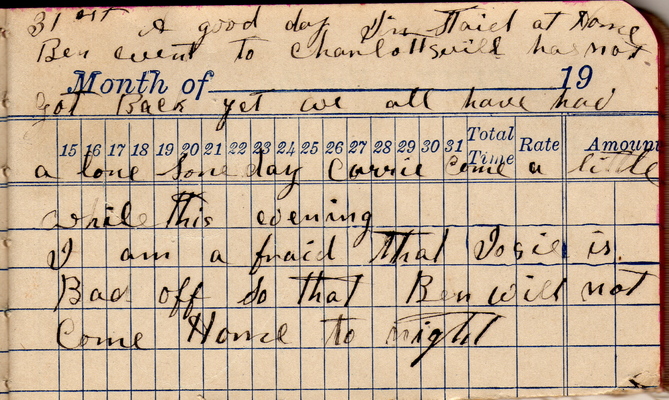 31st A good day I'm Staid at Home
Ben went to Charlottsvill has not
Month of 19
got Back yet we all have had
15 16 17 18 19 20 21 22 23 24 25 26 27 28 29 30 31 Total Time Rate Amoun
a lone Some day Carrie Come a little
while this evening
I am a fraid that Josie is
Bad off So that Ben will not
Come Home to night